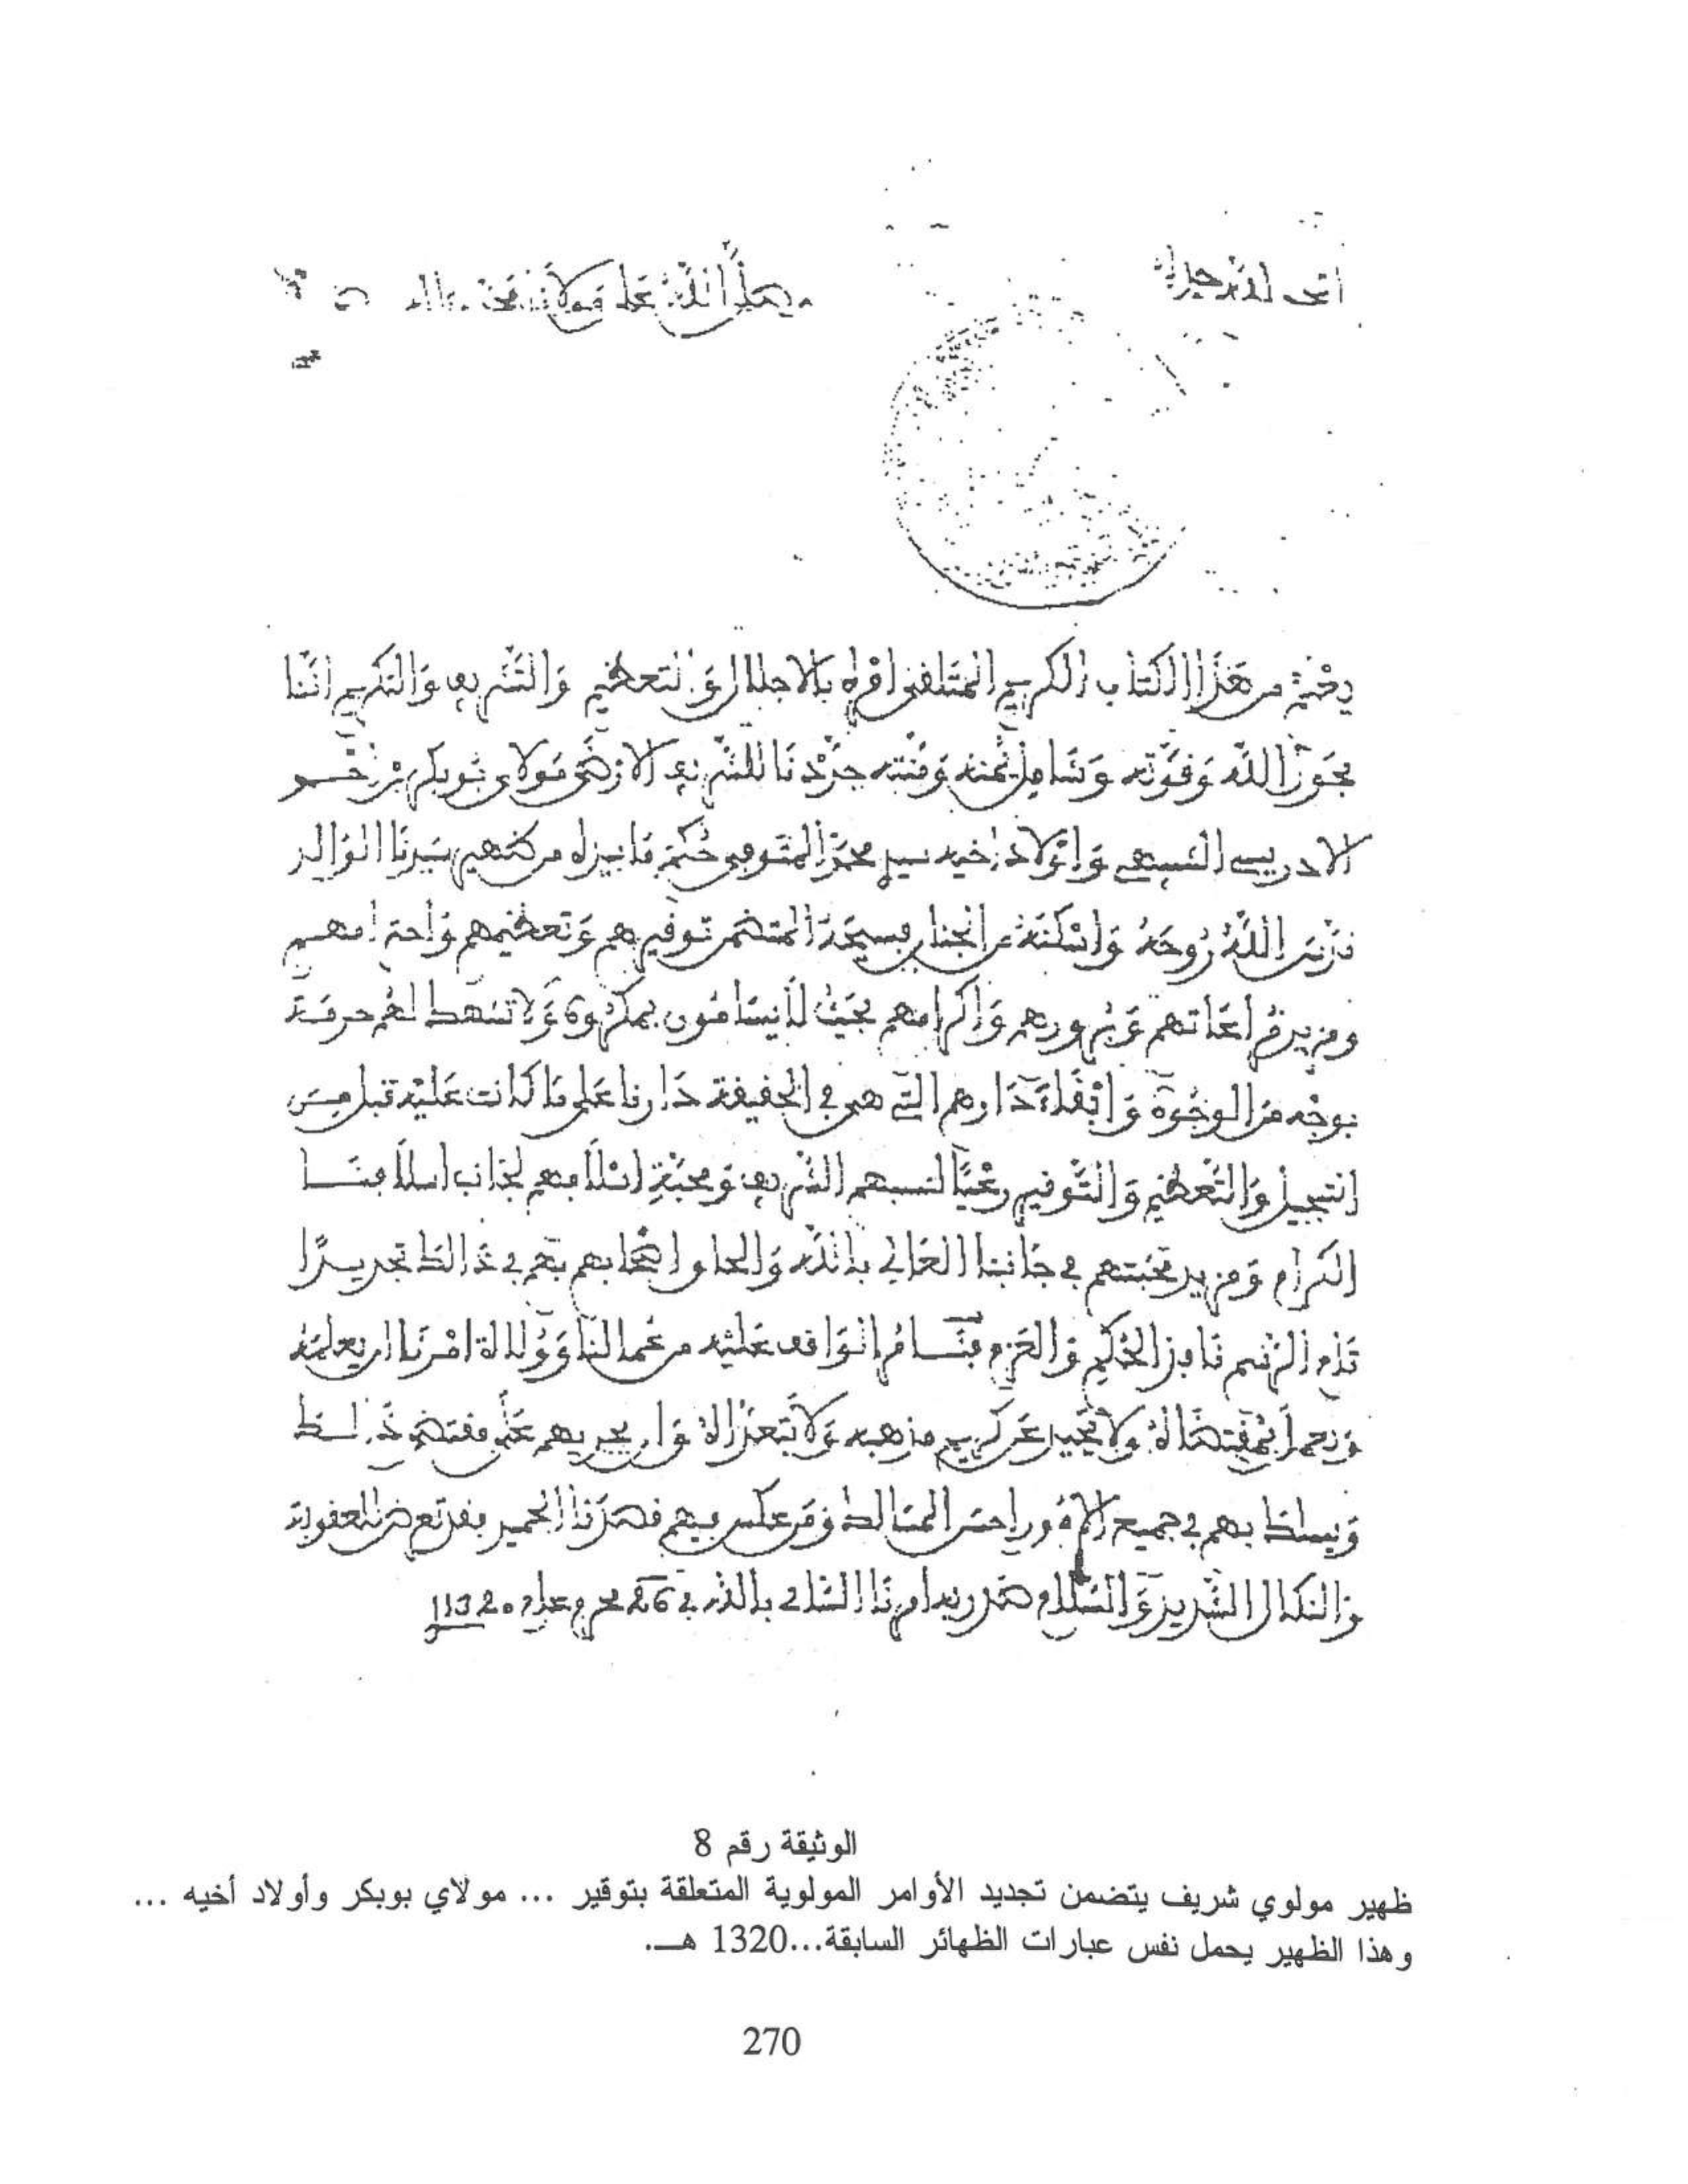 الحمد لله وحده
وصلى الله على مولانا محمد وآله
من هذا الكتاب الكريم المتلقى أمره بالاجلال والتعظيم والتشريف والتكريم اننا
بحول الله وقوته وشامل يمنه ومنته جددنا للشريف الارضى مولاي بوبكر بن
الادريسي وأولاد أخيه سيدي محمد المتوفى حكم ما بيده من ظهير سيدنا الوالد
قدس الله روحه وأسكنه من الجنان فسيحه المتضمن توقيرهم وتعظيمهم واحترامهم
ومزيد مراعاتهم وبرورهم واكرامهم بحيث لا يسامون بمكروه ولا تنهط لهم حرمة
بوجه من الوجوه وابقاء دارهم التي هي في الحقيقة دارنا على ما كانت عليه قبل من
التبجيل والتعظيم والتوقير رعيا لنسبهم الشريف ومحبة اسلافهم لجانب اسلافنا
الكرام ومزيد محبتهم في جانبنا العالي بالله والحاق اصحابهم بهم في ذالك تجديدا
تام الرسم نافذ الحكم والعزم فنامر الواقف عليه من عمالنا وولاة امرنا ان يعلمه
ويعمل بمقتضاه ولا يحيد عن كريم مذهبه ولا يتعداه وان يجريهم على مقتضى ذلك
ويسلك بهم في جميع الامور احسن المسالك ومن عكس فيهم قصدنا الحميد فقد تعرض للعقوبة
والنكال الشديد والسلام صدر به امرنا الشريف بالله في 26 محرم عام 1320
الوثيقة رقم 8
ظهير مولوي شريف يتضمن تجديد الأوامر المولوية المتعلقة بتوقير ... مولاي بوبكر وأولاد أخيه ...
وهذا الظهير يحمل نفس عبارات الظهائر السابقة...1320 هـ.
270